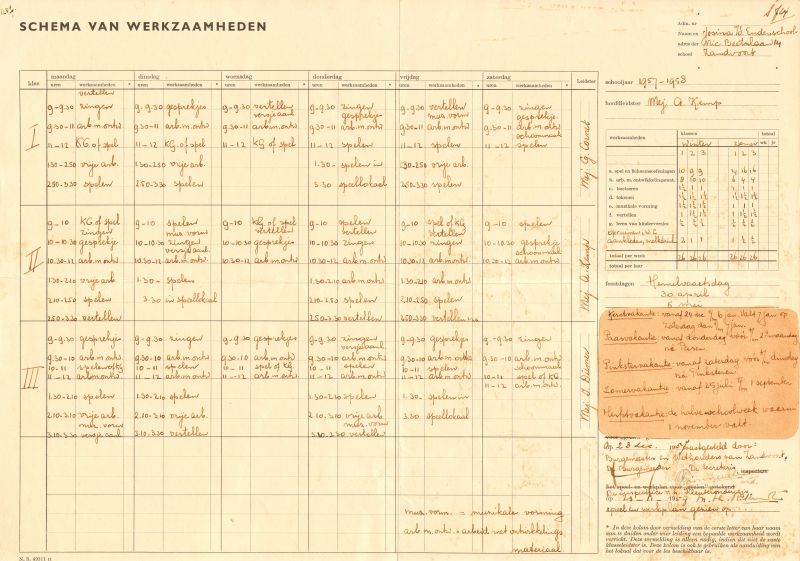 SCHEMA VAN WERKZAAMHEDEN
Adm. nr
Naam en Josina vd Endenschool
adres der
school Zandvoort
schooljaar 1957-1958
hoofdleidster Mej. A. Kemp
klas
maandag dinsdag woensdag donderdag vrijdag zaterdag Leidster
uren werkzaamheden * uren werkzaamheden * uren werkzaamheden * uren werkzaamheden * uren werkzaamheden * uren werkzaamheden *
I
vertellen
9-9.30 zingen 9-9.30 gesprekjes 9-9.30 vertellen 9-9.30 zingen 9-9.30 vertellen 9-9.30 zingen
versjes gesprekjes mus. vorm gesprekjes
9.30-11 arb.m.ontw. 9.30-11 arb.m.ontw. 9.30-11 arb.m.ontw. 9.30-11 arb.m.ontw. 9.30-11 arb.m.ontw. 9.30-11 arb.m.ontw.
schoonmaak
11-12 KG of spel 11-12 KG of spel 11-12 KG of spel 11-12 spelen 11-12 spelen 11-12 spelen
1.30-2.50 vrije arb. 1.30-2.50 vrije arb. 1.30- spelen in 1.30-2.50 vrije arb.
2.50-3.30 spelen 2.50-3.30 spelen 3.30 speellokaal 2.50-3.30 spelen
II
9-10 KG of spel 9-10 spelen 9-10 KG of spel 9-10 spelen 9-10 spel of KG 9-10 spelen
zingen mus. vorm vertellen vertellen vertellen
10-10.30 gesprekjes 10-10.30 zingen 10-10.30 gesprekjes 10-10.30 zingen 10-10.30 zingen 10-10.30 gesprekjes
10.30-12 arb.m.ontw. 10.30-12 arb.m.ontw. 10.30-12 arb.m.ontw. 10.30-12 arb.m.ontw. 10.30-12 arb.m.ontw. 10.30-12 arb.m.ontw.
1.30-2.10 vrije arb 1.30- spelen 1.30-2.10 arb.m.ontw 1.30-2.10 arb.m.ontw
2.10-2.50 spelen 3.30 in speellokaal 2.10-2.50 spelen 2.10-2.50 spelen
2.50-3.30 vertellen 2.50-3.30 vertellen 2.50-3.30 vertellen
Mej. A. Kemp
III
9-9.30 gesprekjes 9-9.30 zingen 9-9.30 gesprekjes 9-9.30 zingen 9-9.30 gesprekjes 9-9.30 zingen
9.30-10 arb.m.ontw 9.30-10 arb.m.ontw. 9.30-10 arb.m.ontw. 9.30-10 arb.m.ontw. 9.30-10 arb.m.ontw. 9.30-10 arb.m.ontw.
10-11 10-11 spelen 10-11 spel of KG 10-11 spelen 10-11 spelen
11-12 arb.m.ontw 11-12 arb.m.ontw 11-12 arb.m.ontw 11-12 arb.m.ontw 11-12 arb.m.ontw 11-12 arb.m.ontw.
1.30-2.10 spelen 1.30-2.10 spelen 1.30-2.10 spelen 1.30 spelen in
2.10-3.10 vrije arb 2.10-3.10 vrije arb. 2.10-3.10 vrije arb 3.30 speellokaal
mus. vorm mus. vorm
3.10-3.30 versje aanl 3.10-3.30 vertellen 3.10-3.30 vertellen
mus. vorm. = muzikale vorming
arb m. ontw. = arbeid met ontwikkelings
materiaal
werkzaamheden klassen totaal
Winter Zomer wk jr
1 2 3 1 2 3
a. spel en lichaamsoefeningen 10 9 9 16 16
b. arb. m. ontwikkelingsmat. 8 10 10 6 4 4
c. boetseren
d. tekenen
e. muzikale vorming
f. vertellen
g. leren van kinderversjes
totaal per week 26 26 26 26 26 26
totaal per jaar
feestdagen Hemelvaartsdag
30 april
5 mei
Kerstvakantie: vanaf 24 dec
Paasvakantie: vanaf donderdag voor t/m 2e maandag
na Pasen
Pinkstervakantie: vanaf zaterdag voor t/m dinsdag
na Pinksteren
Zomervakantie: vanaf 25 juli t/m 1 september
Herfstvakantie: de halve schoolweek waarin
1 november valt.
Op 23 dec. 1957 vastgesteld door:
Burgemeester en Wethouders van Zandvoort
De Burgemeester De Secretaris
het speel- en werkplan voor „gezien" getekend
speel en werkplan gezien op
* In deze kolom door vermelding van de eerste letter van haar naam
aan te duiden onder wier leiding een bepaalde werkzaamheid wordt
verricht. Deze vermelding is alleen nodig, indien dit niet de vaste
klasseleidster is. Deze kolom is ook te gebruiken als aanduiding van
het lokaal dat voor de les beschikbaar is.